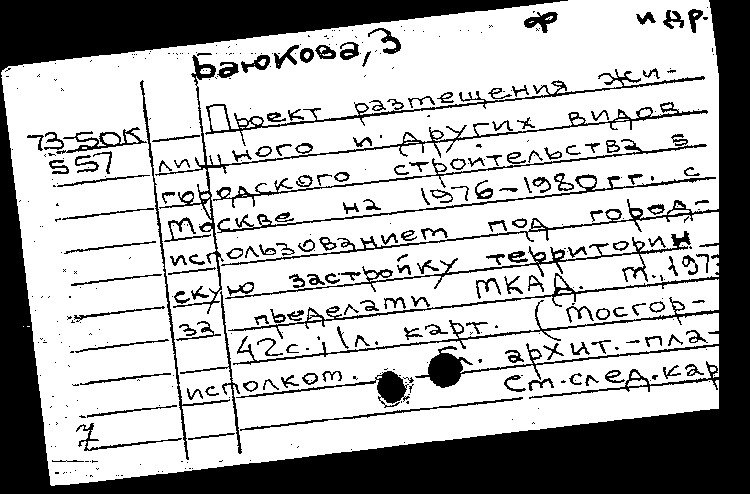 ф и др.
Баюкова, З
Проект размещения жи-
73-50К
557
лищного и других видов
городского строительства в
Москве на 1976-1980 гг. с
использованием под город-
скую застройку территории
за пределами МКАД. М., 1973
42с.; 1л. карт. (Мосгор-
исполком. Гл. архит.-пла-
См.след.кар
7